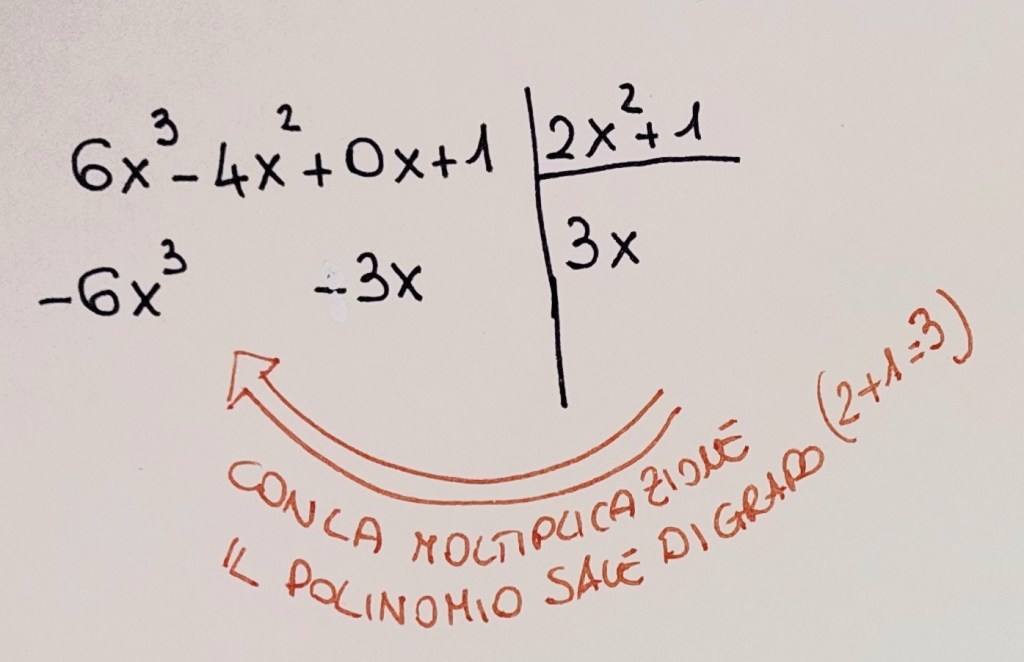 6x³ - 4x² + 0x + 1 | 2x² + 1
-6x³ - 3x | 3x
CON LA MOLTIPLICAZIONE
IL POLINOMIO SALE DI GRADO (2+1=3)